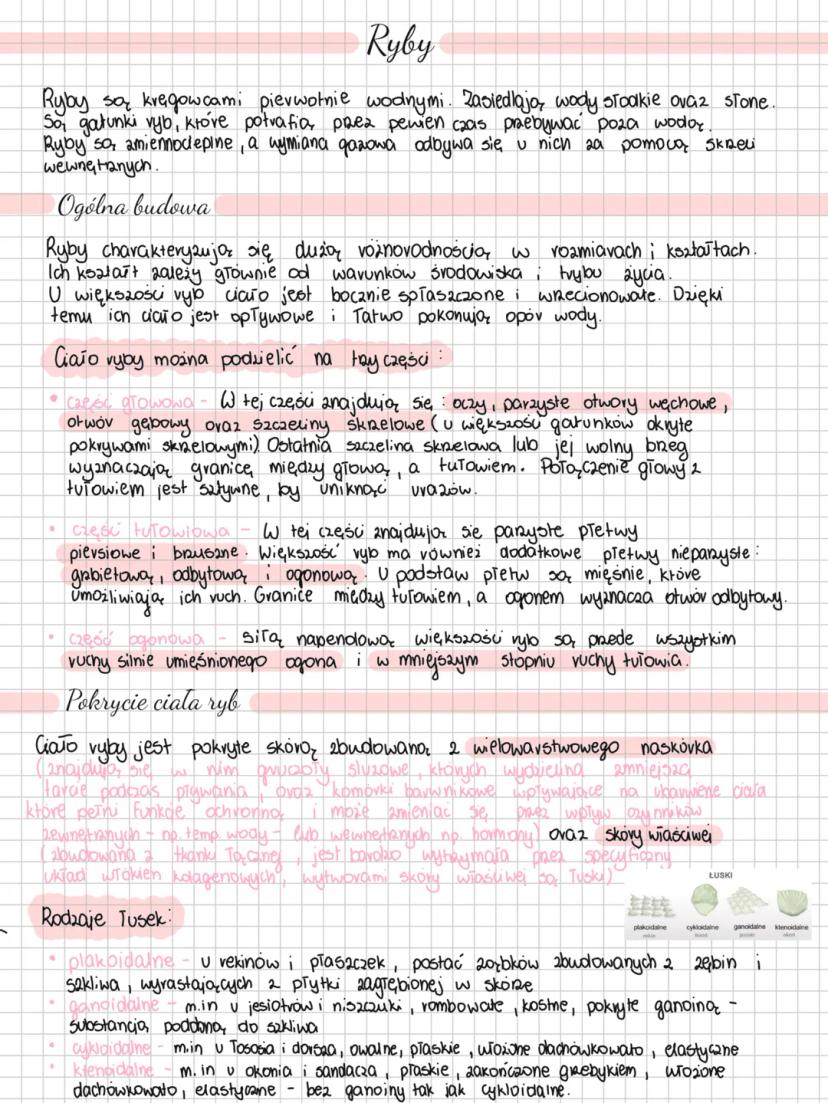 Ryby
Ryby są kręgowcami pierwotnie wodnymi. Zasiedlają wody słodkie oraz słone.
Są gatunki ryb, które potrafią przez pewien czas przebywać poza wodą.
Ryby są zmiennocieplne, a wymiana gazowa odbywa się u nich za pomocą skrzeli
wewnętrznych.
Ogólna budowa
Ryby charakteryzują się dużą różnorodnością w rozmiarach i kształtach.
Ich kształt zależy głównie od warunków środowiska i trybu życia.
U większości ryb ciało jest bocznie spłaszczone i wrzecionowate. Dzięki
temu ich ciało jest opływowe i łatwo pokonują opór wody.
Ciało ryby można podzielić na trzy części:
• część głowowa - W tej części znajdują się: oczy, parzyste otwory węchowe,
otwór gębowy oraz szczeliny skrzelowe (u większości gatunków okryte
pokrywami skrzelowymi). Ostatnia szczelina skrzelowa lub jej wolny brzeg
wyznaczają granicę między głową, a tułowiem. Połączenie głowy z
tułowiem jest sztywne, by uniknąć urazów.
• część tułowiowa - W tej części znajdują się parzyste płetwy
piersiowe i brzuszne. Większość ryb ma również dodatkowe płetwy nieparzyste:
grzbietową, odbytową i ogonową. U podstaw płetw są mięśnie, które
umożliwiają ich ruch. Granice między tułowiem, a ogonem wyznacza otwór odbytowy.
• część ogonowa - siłą napendową większości ryb są przede wszystkim
ruchy silnie umięśnionego ogona i w mniejszym stopniu ruchy tułowia.
Pokrycie ciała ryb
Ciało ryby jest pokryte skórą zbudowaną z wielowarstwowego naskórka
(znajdują się w nim gruczoły śluzowe, których wydzielina zmniejsza
tarcie podczas pływania, oraz komórki barwnikowe wpływające na ubarwienie ciała
które pełni funkcje ochronną i może zmieniać się przez wpływ czynników
zewnętrznych - np. temp. wody - lub wewnętrznych np. hormony) oraz skóry właściwej
(zbudowana z tkanki łącznej, jest bardzo wytrzymała przez specyficzny
układ włókien kolagenowych, wytworami skóry właściwej są łuski)
ŁUSKI
plakoidalne cykloidalne ganoidalne ktenoidalne
Rodzaje łusek:
• plakoidalne - u rekinów i płaszczek, postać ząbków zbudowanych z zębin i
szkliwa, wyrastających z płytki zagrębionej w skórze
• ganoidalne - m.in u jesiotrów i niszczuki, rombowate, kostne, pokryte ganoiną -
substancją poddoną do szkliwa
• cykloidalne - m.in u łososia i dorsza, owalne, płaskie, ułożone dachówkowato, elastyczne
• ktenoidalne - m.in u okonia i sandacza, płaskie, zakończone grzebykiem, ułożone
dachówkowato, elastyczne - bez ganoiny tak jak cykloidalne.